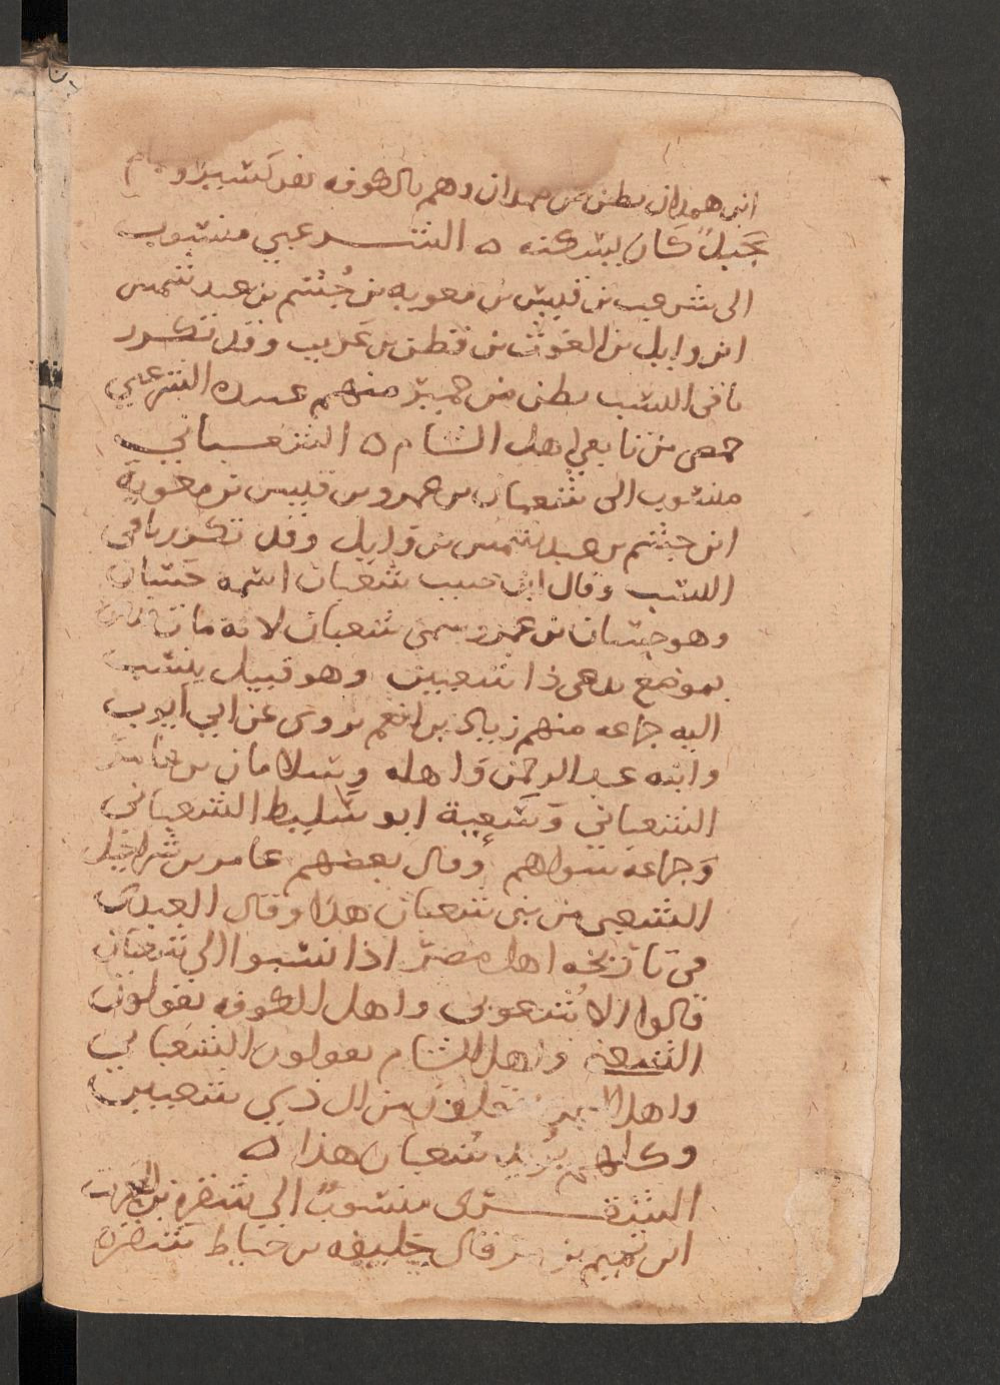 ابن همدان بطن من همدان وهم بالكوفه نفر كثير و
بجبل كان يسكنه ه الشرعبي منسوب
الى شرعب بن قيس بن معويه بن جُشم بن عبد شمس
ابن وايل بن الغوث بن قطن بن عريب وقد تكرر
باقى النسب بطن من حمير منهم عبده الشرعبي
حمصى من تابعي اهل الشام ه الشعباني
منسوب الى شعبان بن عمرو بن قيس بن معوية
ابن جشم بن عبد شمس بن وايل وقد تكرر باقى
النسب وقال ابن حبيب شعبان اسمه حسان
وهو حسان بن عمرو سمى شعبان لانه مات
بموضع يدعى ذا شعبين وهو قبيل ينسب
اليه جماعه منهم زياد بن انعم يروى عن ابي ايوب
وابنه عبد الرحمن واهله وسلامان بن عامر
الشعباني وشعبة ابو سليط الشعباني
وجماعه سواهم وقال بعضهم عامر بن شراحيل
الشعبى من بنى شعبان هذا وقال العبدي
فى تاريخه اهل مصر اذا نسبوا الى شعبان
قالوا الاُشعوبى واهل الكوفه يقولون
الشعبى واهل الشام يقولون الشعباني
واهل اليمن يقولون من ال ذي شعبين
وكلهم يُريد شعبان هذا ه
الشقرى منسوب الي شقره بن الحرث
ابن تميم بن مر قال خليفه بن خياط شقرة